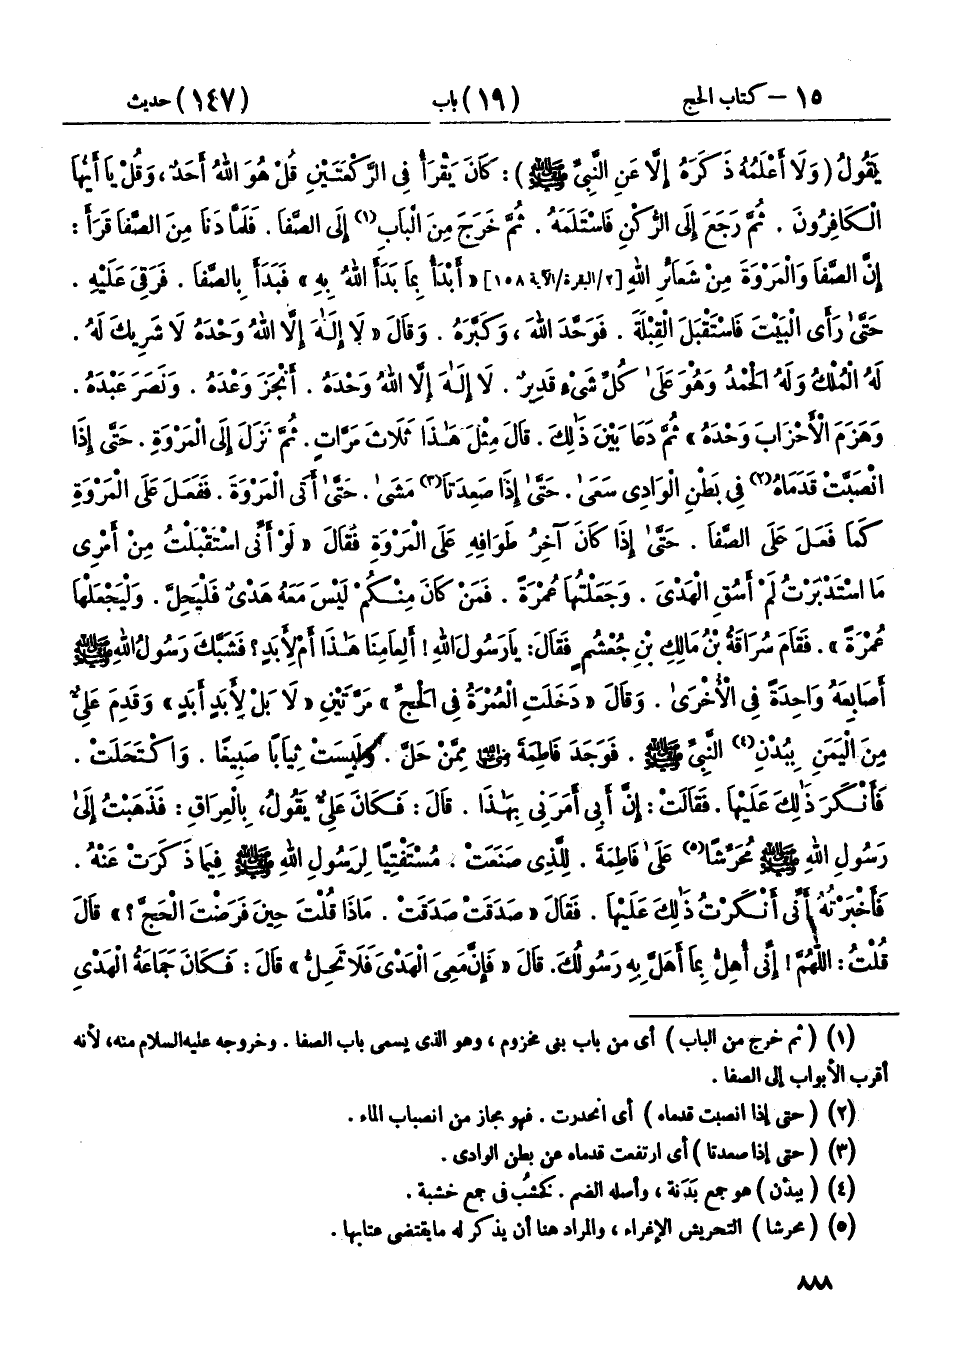 ١٥ – كتاب الحج (١٩) باب (١٤٧) حديث
يَقُولُ (وَلَا أَعْلَمُهُ ذَكَرَهُ إِلَّا عَنِ النَّبِيِّ ﷺ): كَانَ يَقْرَأُ فِي الرَّكْعَتَيْنِ قُلْ هُوَ اللهُ أَحَدٌ، وَقُلْ يَا أَيُّهَا
الْكَافِرُونَ . ثُمَّ رَجَعَ إِلَى الرُّكْنِ فَاسْتَلَمَهُ . ثُمَّ خَرَجَ مِنَ الْبَابِ(١) إِلَى الصَّفَا . فَلَمَّا دَنَا مِنَ الصَّفَا قَرَأَ :
إِنَّ الصَّفَا وَالْمَرْوَةَ مِنْ شَعَائِرِ اللهِ [٢/البقرة/الآية ١٥٨] « أَبْدَأُ بِمَا بَدَأَ اللهُ بِهِ » فَبَدَأَ بِالصَّفَا . فَرَقِيَ عَلَيْهِ .
حَتَّىٰ رَأَى الْبَيْتَ فَاسْتَقْبَلَ الْقِبْلَةَ . فَوَحَّدَ اللهَ ، وَكَبَّرَهُ . وَقَالَ « لَا إِلَـٰهَ إِلَّا اللهُ وَحْدَهُ لَا شَرِيكَ لَهُ .
لَهُ الْمُلْكُ وَلَهُ الْحَمْدُ وَهُوَ عَلَىٰ كُلِّ شَيْءٍ قَدِيرٌ . لَا إِلَـٰهَ إِلَّا اللهُ وَحْدَهُ . أَنْجَزَ وَعْدَهُ . وَنَصَرَ عَبْدَهُ .
وَهَزَمَ الْأَحْزَابَ وَحْدَهُ » ثُمَّ دَعَا بَيْنَ ذَٰلِكَ . قَالَ مِثْلَ هَـٰذَا ثَلَاثَ مَرَّاتٍ. ثُمَّ نَزَلَ إِلَى الْمَرْوَةِ . حَتَّى إِذَا
انْصَبَّتْ قَدَمَاهُ(٢) فِي بَطْنِ الْوَادِي سَعَىٰ . حَتَّىٰ إِذَا صَعِدَتَا(٣) مَشَىٰ . حَتَّىٰ أَتَى الْمَرْوَةَ . فَفَعَلَ عَلَى الْمَرْوَةِ
كَمَا فَعَلَ عَلَى الصَّفَا . حَتَّىٰ إِذَا كَانَ آخِرُ طَوَافِهِ عَلَى الْمَرْوَةِ فَقَالَ « لَوْ أَنِّي اسْتَقْبَلْتُ مِنْ أَمْرِي
مَا اسْتَدْبَرْتُ لَمْ أَسُقِ الْهَدْيَ . وَجَعَلْتُهَا عُمْرَةً . فَمَنْ كَانَ مِنْكُمْ لَيْسَ مَعَهُ هَدْيٌ فَلْيَحِلَّ . وَلْيَجْعَلْهَا
عُمْرَةً » . فَقَامَ سُرَاقَةُ بْنُ مَالِكِ بْنِ جُعْشُمٍ فَقَالَ: يَا رَسُولَ اللهِ ! أَلِعَامِنَا هَـٰذَا أَمْ لِأَبَدٍ ؟ فَشَبَّكَ رَسُولُ اللهِ ﷺ
أَصَابِعَهُ وَاحِدَةً فِي الْأُخْرَىٰ . وَقَالَ « دَخَلَتِ الْعُمْرَةُ فِي الْحَجِّ » مَرَّتَيْنِ « لَا بَلْ لِأَبَدِ أَبَدٍ » وَقَدِمَ عَلِيٌّ
مِنَ الْيَمَنِ بِبُدْنِ(٤) النَّبِيِّ ﷺ . فَوَجَدَ فَاطِمَةَ رضي الله عنها مِمَّنْ حَلَّ . وَلَبِسَتْ ثِيَابًا صَبِيغًا . وَاكْتَحَلَتْ .
فَأَنْكَرَ ذَٰلِكَ عَلَيْهَا . فَقَالَتْ : إِنَّ أَبِي أَمَرَنِي بِهَـٰذَا . قَالَ : فَكَانَ عَلِيٌّ يَقُولُ، بِالْعِرَاقِ : فَذَهَبْتُ إِلَىٰ
رَسُولِ اللهِ ﷺ مُحَرِّشًا(٥) عَلَىٰ فَاطِمَةَ . لِلَّذِي صَنَعَتْ . مُسْتَفْتِيًا لِرَسُولِ اللهِ ﷺ فِيمَا ذَكَرَتْ عَنْهُ .
فَأَخْبَرْتُهُ أَنِّي أَنْكَرْتُ ذَٰلِكَ عَلَيْهَا . فَقَالَ « صَدَقَتْ صَدَقَتْ . مَاذَا قُلْتَ حِينَ فَرَضْتَ الْحَجَّ ؟ » قَالَ
قُلْتُ : اللَّهُمَّ ! إِنِّي أُهِلُّ بِمَا أَهَلَّ بِهِ رَسُولُكَ. قَالَ « فَإِنَّ مَعِيَ الْهَدْيَ فَلَا تَحِلُّ » قَالَ : فَكَانَ جَمَاعَةُ الْهَدْيِ
(١) (ثم خرج من الباب) أى من باب بنى مخزوم ، وهو الذى يسمى باب الصفا . وخروجه عليه السلام منه، لأنه
أقرب الأبواب إلى الصفا .
(٢) (حتى إذا انصبت قدماه) أى انحدرت . فهو مجاز من انصباب الماء .
(٣) (حتى إذا صعدتا) أى ارتفعت قدماه عن بطن الوادى .
(٤) (ببدْن) هو جمع بَدَنة ، وأصله الضم . كخُشُب فى جمع خشبة .
(٥) (محرشا) التحريش الإغراء ، والمراد هنا أن يذكر له ما يقتضى عتابها .
٨٨٨